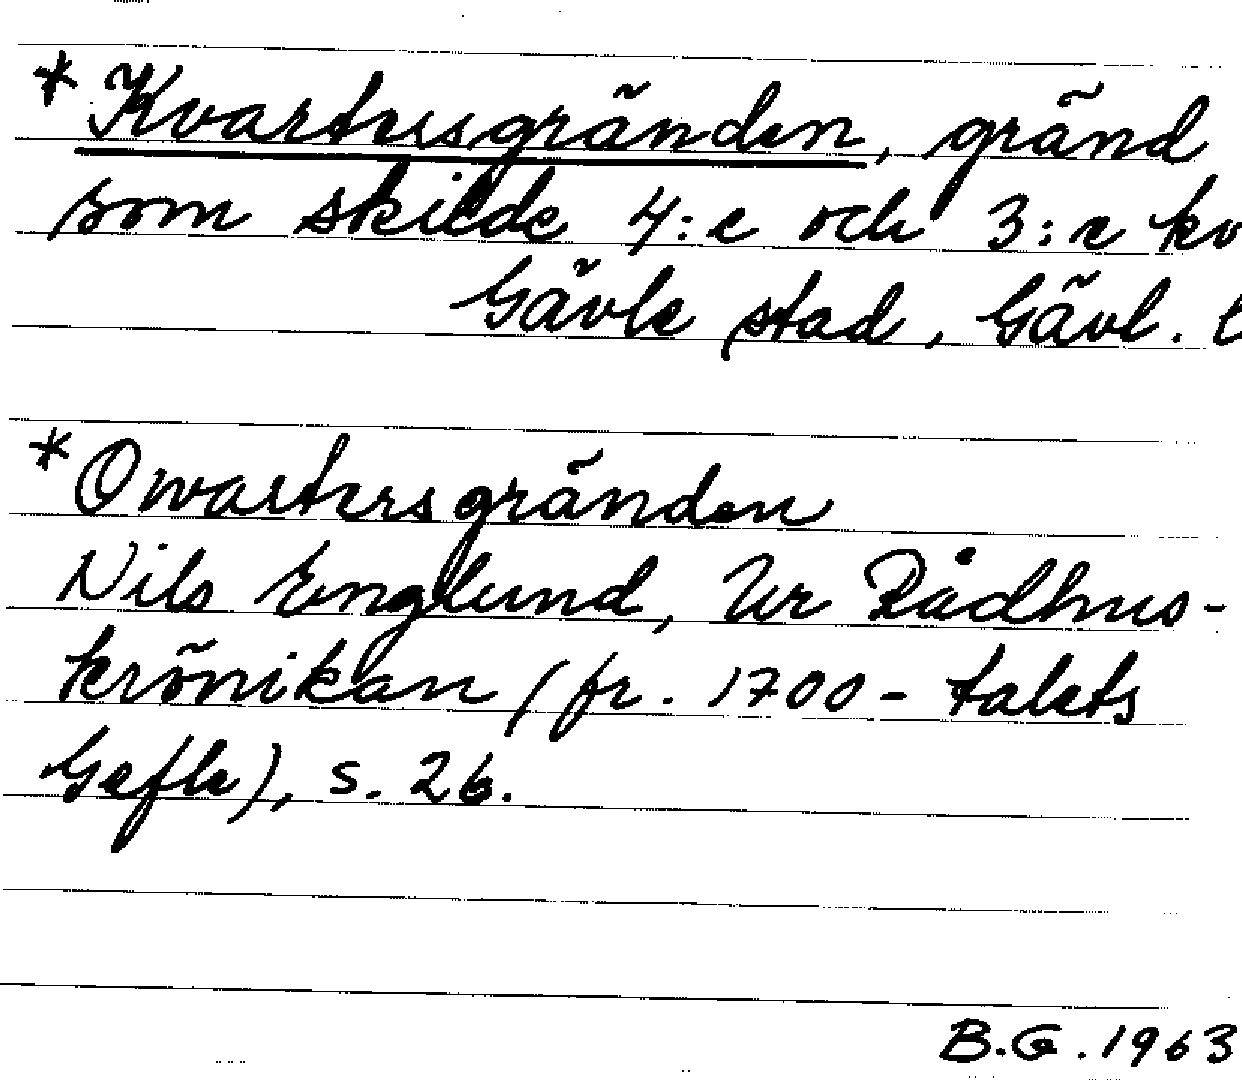 *Kvartersgränden, gränd
som skilde 4:e och 3:e kv
Gävle stad, Gävl. l
*Qwartersgränden
Nils Englund, Ur Rådhus-
krönikan (fr. 1700-talets
Gefle), s. 26.
B.G. 1963